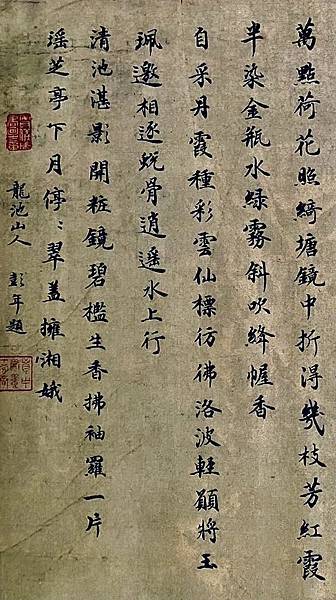 萬點荷花照綺塘鏡中折得幾枝芳紅霞
半染金瓶水綠霧斜吹絳幄香
自采丹霞種彩雲仙標彷彿洛波輕顧將玉
珮邀相逐蛻骨逍遙水上行
清池湛影開粧鏡碧檻生香拂袖羅一片
瑶芝亭下月停〻翠蓋擁湘娥
龍池山人　彭年題